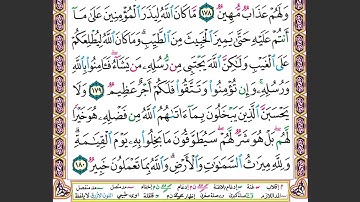 وَلَهُمْ عَذَابٌ مُّهِينٌ ١٧٨ مَّا كَانَ ٱللَّهُ لِيَذَرَ ٱلْمُؤْمِنِينَ عَلَىٰ مَآ
أَنتُمْ عَلَيْهِ حَتَّىٰ يَمِيزَ ٱلْخَبِيثَ مِنَ ٱلطَّيِّبِ ۗ وَمَا كَانَ ٱللَّهُ لِيُطْلِعَكُمْ
عَلَى ٱلْغَيْبِ وَلَٰكِنَّ ٱللَّهَ يَجْتَبِى مِن رُّسُلِهِۦ مَن يَشَآءُ ۖ فَـَٔامِنُوا۟ بِٱللَّهِ
وَرُسُلِهِۦ ۚ وَإِن تُؤْمِنُوا۟ وَتَتَّقُوا۟ فَلَكُمْ أَجْرٌ عَظِيمٌ ١٧٩ وَلَا
يَحْسَبَنَّ ٱلَّذِينَ يَبْخَلُونَ بِمَآ ءَاتَىٰهُمُ ٱللَّهُ مِن فَضْلِهِۦ هُوَ خَيْرًا
لَّهُم ۖ بَلْ هُوَ شَرٌّ لَّهُمْ ۖ سَيُطَوَّقُونَ مَا بَخِلُوا۟ بِهِۦ يَوْمَ ٱلْقِيَٰمَةِ ۗ
وَلِلَّهِ مِيرَٰثُ ٱلسَّمَٰوَٰتِ وَٱلْأَرْضِ ۗ وَٱللَّهُ بِمَا تَعْمَلُونَ خَبِيرٌ ١٨٠